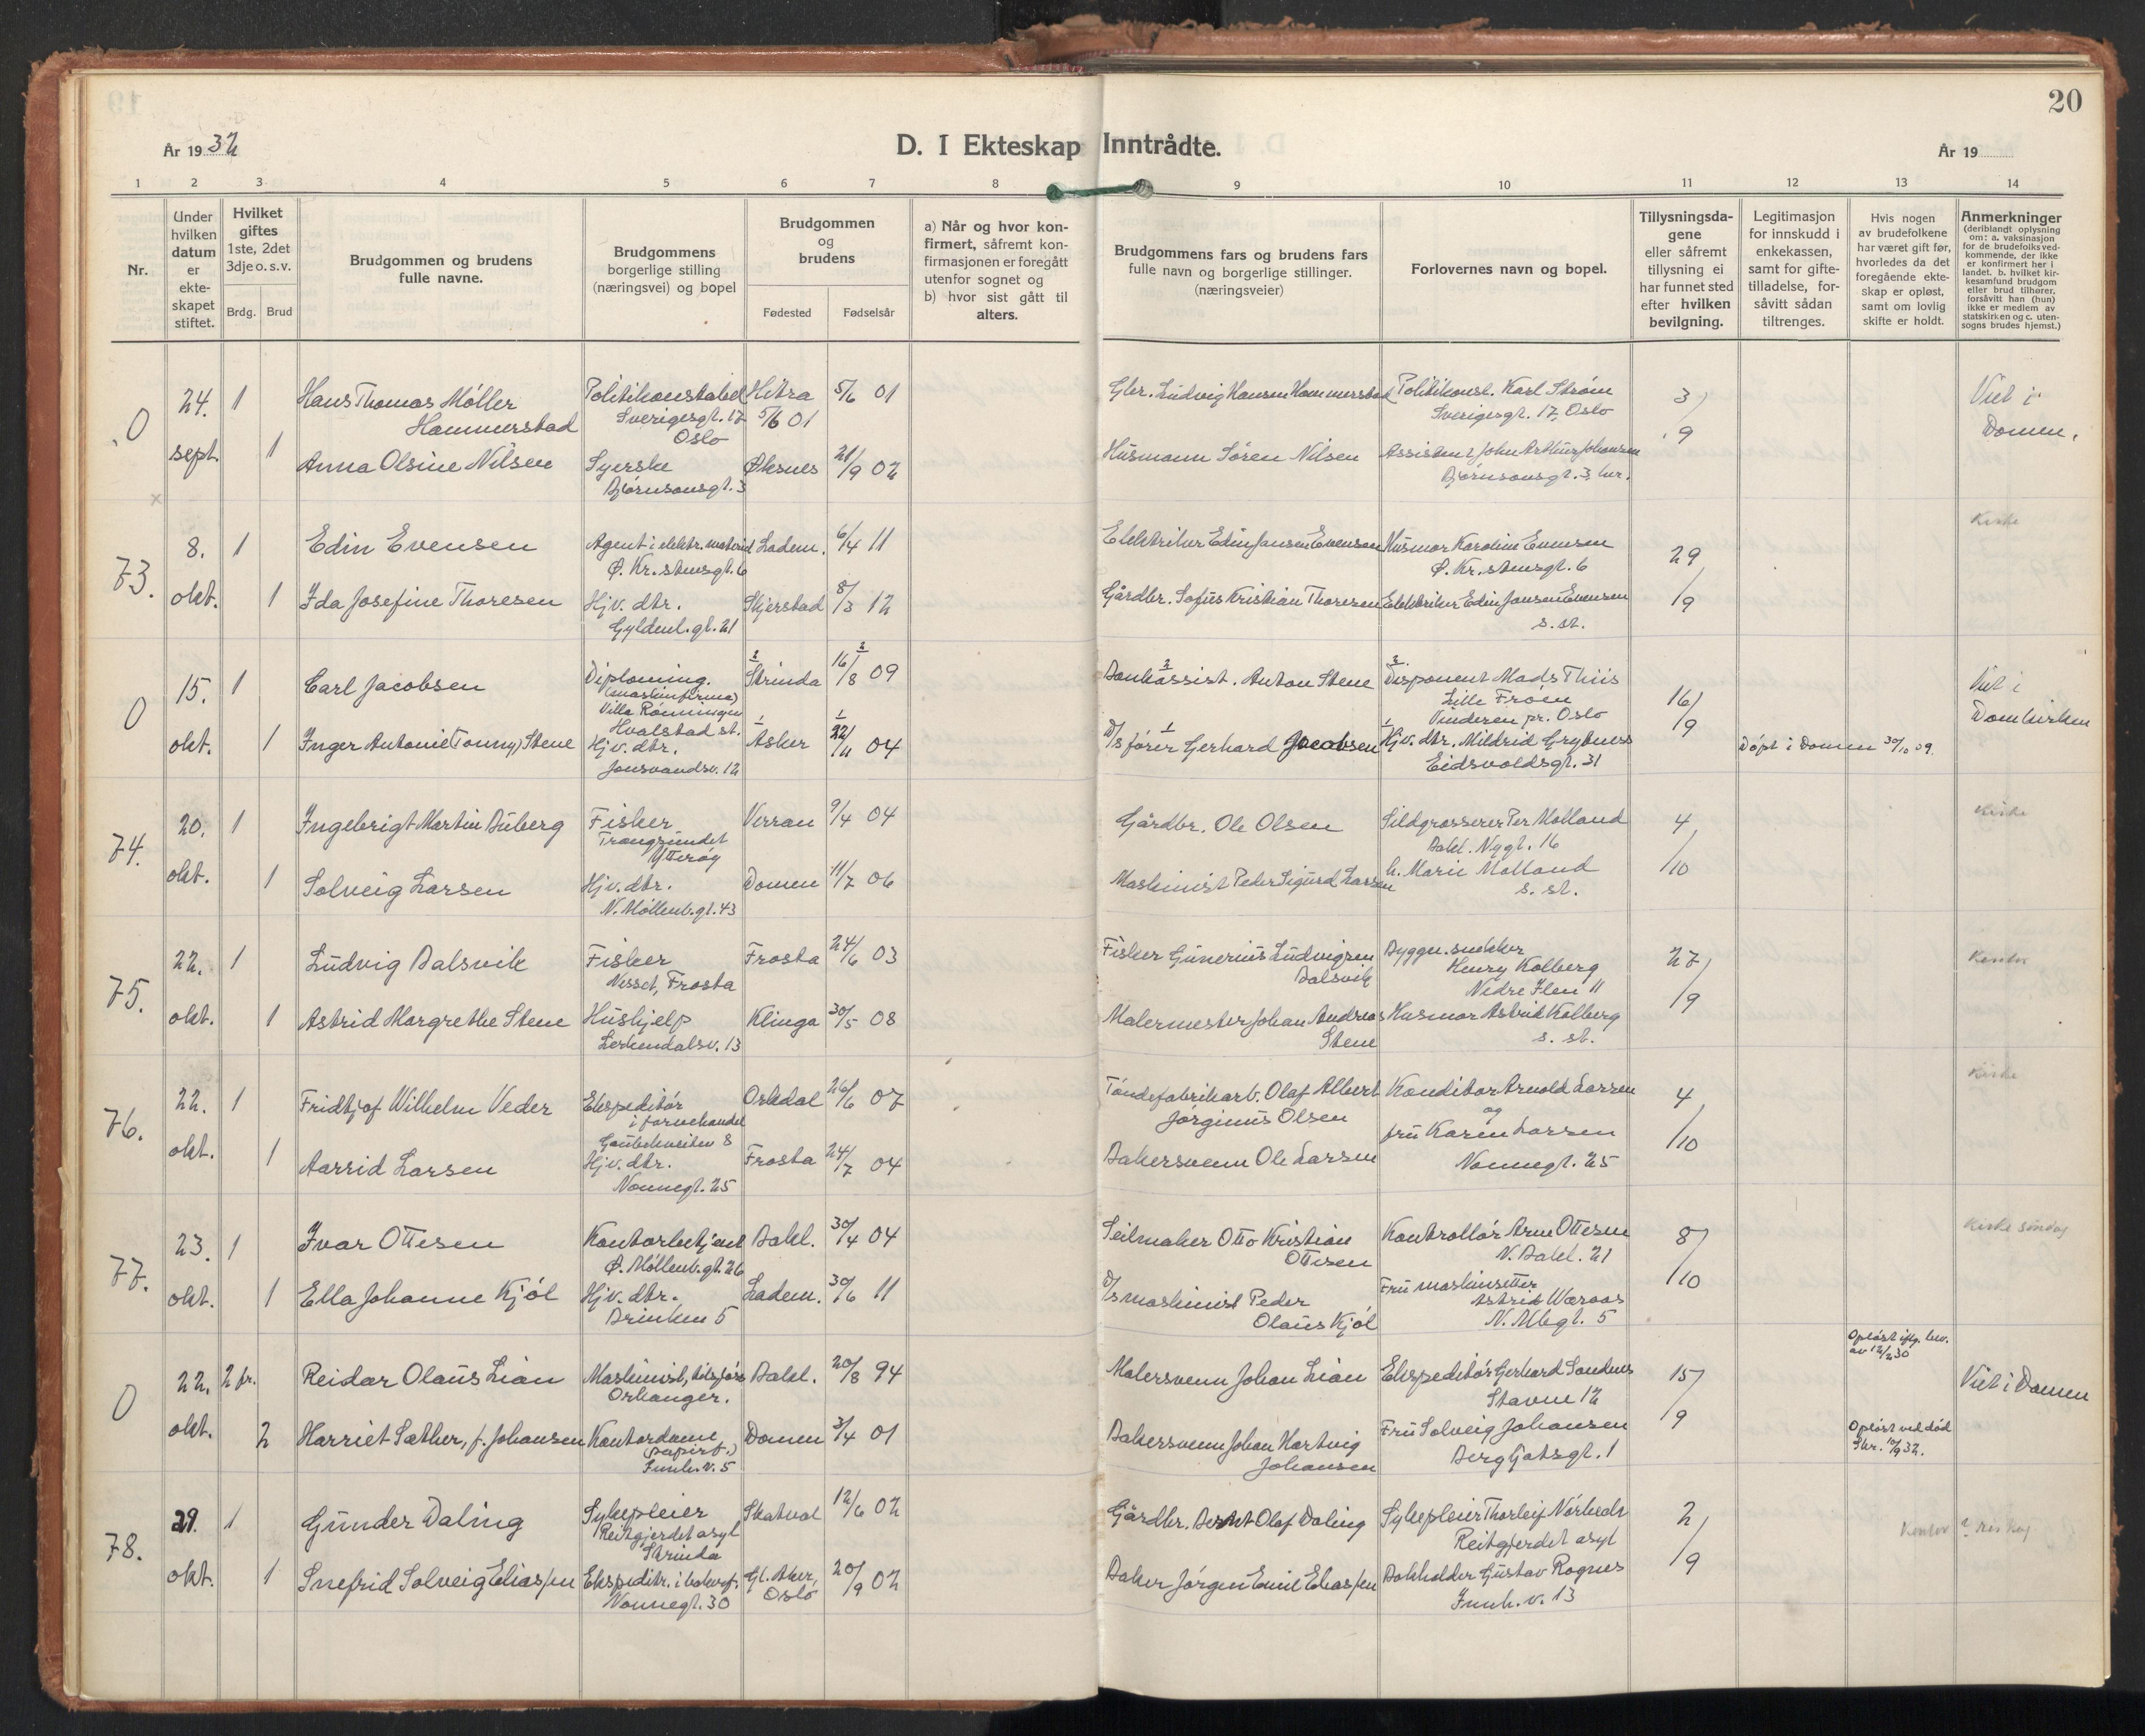 20
År 1932
D. I Ekteskap Inntrådte.
År 19
1 2 3 4 5 6 7 8 9 10 11 12 13 14
Nr.
Under hvilken datum er ekteskapet stiftet.
Hvilket giftes 1ste, 2det 3dje o. s. v.
Brdg. Brud
Brudgommen og brudens fulle navne.
Brudgommens borgerlige stilling (næringsvei) og bopel
Brudgommen og brudens
Fødested Fødselsår
a) Når og hvor konfirmert, såfremt konfirmasjonen er foregått utenfor sognet og b) hvor sist gått til alters.
Brudgommens fars og brudens fars fulle navn og borgerlige stillinger. (næringsveier)
Forlovernes navn og bopel.
Tillysningsdagene eller såfremt tillysning ei har funnet sted efter hvilken bevilgning.
Legitimasjon for innskudd i enkekassen, samt for giftetilladelse, forsåvitt sådan tiltrenges.
Hvis nogen av brudefolkene har været gift før, hvorledes da det foregående ekteskap er opløst, samt om lovlig skifte er holdt.
Anmerkninger (deriblandt oplysning om: a. vaksinasjon for de brudefolksvedkommende, der ikke er konfirmert her i landet. b. hvilket kirkesamfund brudgom eller brud tilhører, forsåvitt han (hun) ikke er medlem av statskirken og c. utensogns brudes hjemst.)
0 24. sept. 1 Hans Thomas Möller Hammerstad Politikonstabel Sverigesgt. 17 Oslo Hitra 5/6 01 5/6 01 Gbr. Ludvig Hansen Hammerstad Politikonst. Karl Strøm Sverigesgt. 17, Oslo 3/9 Viet i Domen.
1 Anna Olsine Nilsen Syerske Bjørnsonsgt. 3 Øksnes 21/9 02 Husmann Sören Nilsen Assistent John Arthur Johansen Bjørnsonsgt. 3 her.
73. 8. okt. 1 Edin Evensen Agent i elektr. materiel Ø. Kr.stensgt. 6 Ladem. 6/4 11 Elektriker Edin Jansen Evensen Husmor Karoline Evensen Ø. Kr.stensgt. 6 29/9 Kirke
1 Ida Josefine Thoresen Hjv. dtr. Gyldenl. gt. 21 Skjerstad 8/3 12 Gårdbr. Sofus Kristian Thoresen Elektriker Edin Jansen Evensen s. st.
0 15. okt. 1 Carl Jacobsen Diploming. (maskinfirma) Villa Rönningen Hvalstad st. 2 Strinda 16/8 2 09 Bankassist. 2 Anton Stene 2 Disponent Mads Thiis Lille Frøen Vinderen pr. Oslo 16/9 Viet i Domkirken
1 Inger Antonie (Tonny) Stene Hjv. dtr. Jonsvandsv. 12 1 Asker 1 22/11 04 D/S fører 1 Gerhard Jacobsen 1 Hjv. dtr. Mildrid Grytnes Eidsvoldsgt. 31 Döpt i Domen 30/10 09.
74. 20. okt. 1 Ingebrigt Martin Duberg Fisker Trangsundet Ytterøy Verran 9/4 04 Gårdbr. Ole Olsen Sildgrosserer Per Molland Bakl. Nygt. 16 4/10 Kirke
1 Solveig Larsen Hjv. dtr. N. Möllenb. gt. 43 Domen 11/7 06 Maskinist Peder Sigurd Larsen h. Marie Molland s. st.
75. 22. okt. 1 Ludvig Dalsvik Fisker Nesset, Frosta Frosta 24/6 03 Fisker Gunerius Ludvigsen Dalsvik Byggn. snekker Henry Kolberg Nedre Ilen 11 27/9 Kontor
1 Astrid Margrethe Stene Hushjelp Lerkendalsv. 13 Klinga 30/5 08 Malermester Johan Andreas Stene Husmor Astrid Kolberg s. st.
76. 22. okt. 1 Fridtjof Wilhelm Veder Ekspeditör i farvehandel Gaubekveiten 8 Orkdal 26/6 07 Töndefabrikarb. Olaf Albert Jörginus Olsen Konditor Arnold Larsen og 4/10 Kirke
1 Aasrid Larsen Hjv. dtr. Nonnegt. 25 Frosta 24/7 04 Bakersvenn Ole Larsen fru Karen Larsen Nonnegt. 25
77. 23. okt. 1 Ivar Ottesen Kontorbetjent Ø. Möllenb. gt. 26 Bakl. 30/4 04 Seilmaker Otto Kristian Ottesen Kontrollör Arne Ottesen N. Bakl. 21 8/10 Kirke söndag
1 Ella Johanne Kjöl Hjv. dtr. Brinken 5 Ladem. 30/6 11 D/S maskinist Peder Olaus Kjöl Fru maskinsetter Astrid Wæraas N. Mbgt. 5
0 22. okt. 2 fr. Reidar Olaus Lian Maskinist, Orkanger. Bakl. 20/8 94 Malersvenn Johan Lian Ekspeditör Gerhard Sandnes Stavne 12 15/9 Opløst iflg. bev. av 12/2 30 Viet i Domen
2 Harriet Sæther, f. Johansen Kontordame (papirf.) Innh. v. 5 Domen 3/4 01 Bakersvenn Johan Hartvig Johansen Fru Solveig Johansen Bergljotsgt. 1 Opløst ved död Skr. 10/9 32.
78. 29. okt. 1 Gunder Daling Sykepleier Reitgjerdet asyl Strinda Skatval 12/6 02 Gårdbr. Bernt Olaf Daling Sykepleier Thorleif Nörbech Reitgjerdet asyl 2/9 Kontor
1 Snefrid Solveig Eliassen Ekspeditr. i bakerf. Nonnegt. 30 Gl. Aker, Oslo 20/9 02 Baker Jörgen Emil Eliassen Bokholder Gustav Rognes Innh. v. 13